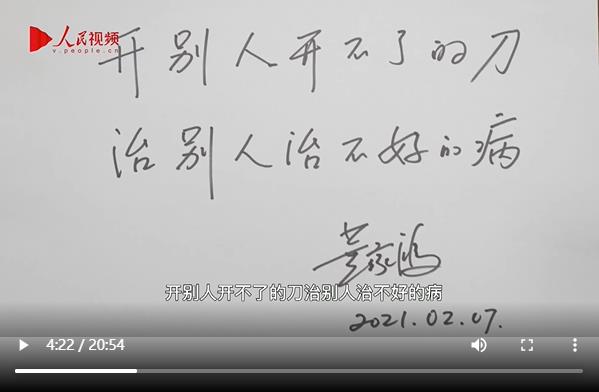 人民视频
v.people.cn
开别人开不了的刀
治别人治不好的病
开别人开不了的刀治别人治不好的病
2021.02.07.
4:22 / 20:54